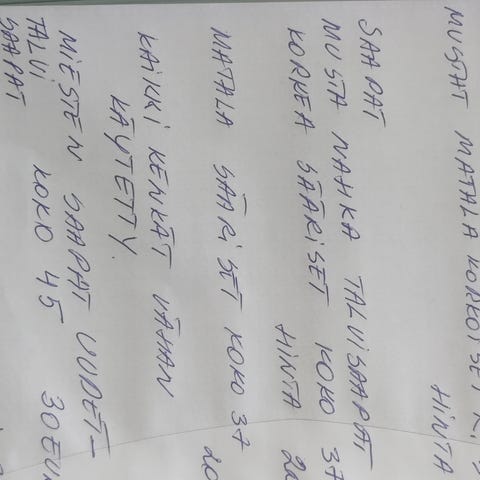 MUSTAT MATALA KORKOISET K.
HINTA
SAAPAT
MUSTA NAHKA TALVISAAPAT
KORKEA SÄÄRISET KOKO 37
HINTA
MATALA SÄÄRISET KOKO 37
20
KAIKKI KENKÄT VÄHÄN
KÄYTETTY.
MIESTEN SAAPAT UUDET-
TALVI KOKO 45 30 EUR
SAAPAT